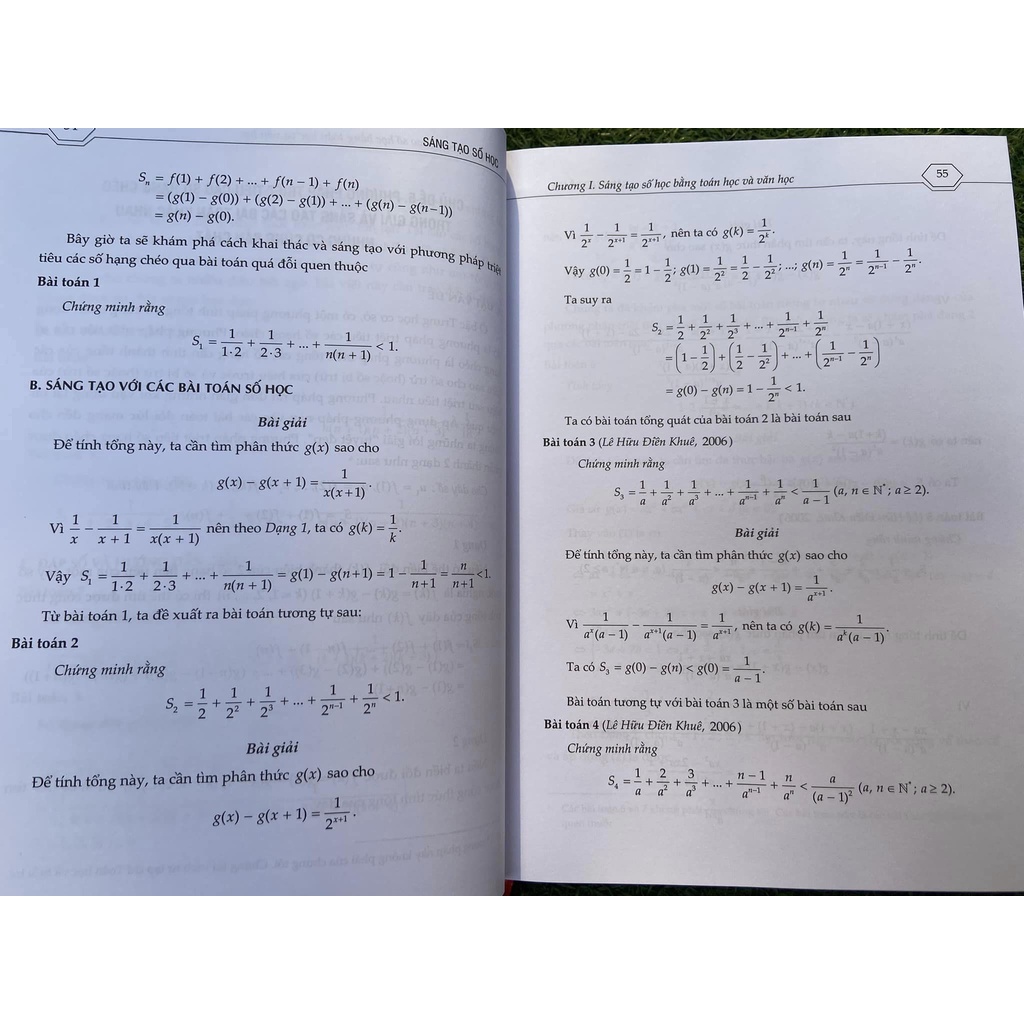 SÁNG TẠO SỐ HỌC
Sₙ = f(1) + f(2) + ... + f(n − 1) + f(n)
= (g(1) − g(0)) + (g(2) − g(1)) + ... + (g(n) − g(n−1))
= g(n) − g(0).
Bây giờ ta sẽ khám phá cách khai thác và sáng tạo với phương pháp triệt
tiêu các số hạng chéo qua bài toán quá đỗi quen thuộc
Bài toán 1
Chứng minh rằng
S₁ = 1/(1·2) + 1/(2·3) + ... + 1/(n(n + 1)) < 1.
B. SÁNG TẠO VỚI CÁC BÀI TOÁN SỐ HỌC
Bài giải
Để tính tổng này, ta cần tìm phân thức g(x) sao cho
g(x) − g(x + 1) = 1/(x(x+1)).
Vì 1/x − 1/(x + 1) = 1/(x(x + 1)) nên theo Dạng 1, ta có g(k) = 1/k.
Vậy S₁ = 1/(1·2) + 1/(2·3) + ... + 1/(n(n + 1)) = g(1) − g(n+1) = 1 − 1/(n+1) = n/(n+1) < 1.
Từ bài toán 1, ta đề xuất ra bài toán tương tự sau:
Bài toán 2
Chứng minh rằng
S₂ = 1/2 + 1/2² + 1/2³ + ... + 1/2ⁿ⁻¹ + 1/2ⁿ < 1.
Bài giải
Để tính tổng này, ta cần tìm phân thức g(x) sao cho
g(x) − g(x + 1) = 1/2ˣ⁺¹.
Chương I. Sáng tạo số học bằng toán học và văn học
55
Vì 1/2ˣ − 1/2ˣ⁺¹ = 1/2ˣ⁺¹, nên ta có g(k) = 1/2ᵏ.
Vậy g(0) = 1/2 = 1 − 1/2; g(1) = 1/2² = 1/2 − 1/2²; ...; g(n) = 1/2ⁿ = 1/2ⁿ⁻¹ − 1/2ⁿ.
Ta suy ra
S₂ = 1/2 + 1/2² + 1/2³ + ... + 1/2ⁿ⁻¹ + 1/2ⁿ
= (1 − 1/2) + (1/2 − 1/2²) + ... + (1/2ⁿ⁻¹ − 1/2ⁿ)
= g(0) − g(n) = 1 − 1/2ⁿ < 1.
Ta có bài toán tổng quát của bài toán 2 là bài toán sau
Bài toán 3 (Lê Hữu Điền Khuê, 2006)
Chứng minh rằng
S₃ = 1/a + 1/a² + 1/a³ + ... + 1/aⁿ⁻¹ + 1/aⁿ < 1/(a − 1) (a, n ∈ ℕ*; a ≥ 2).
Bài giải
Để tính tổng này, ta cần tìm phân thức g(x) sao cho
g(x) − g(x + 1) = 1/aˣ⁺¹.
Vì 1/(aˣ(a − 1)) − 1/(aˣ⁺¹(a − 1)) = 1/aˣ⁺¹, nên ta có g(k) = 1/(aᵏ(a − 1)).
Ta có S₃ = g(0) − g(n) < g(0) = 1/(a − 1).
Bài toán tương tự với bài toán 3 là một số bài toán sau
Bài toán 4 (Lê Hữu Điền Khuê, 2006)
Chứng minh rằng
S₄ = 1/a + 2/a² + 3/a³ + ... + (n − 1)/aⁿ⁻¹ + n/aⁿ < a/(a − 1)² (a, n ∈ ℕ*; a ≥ 2).